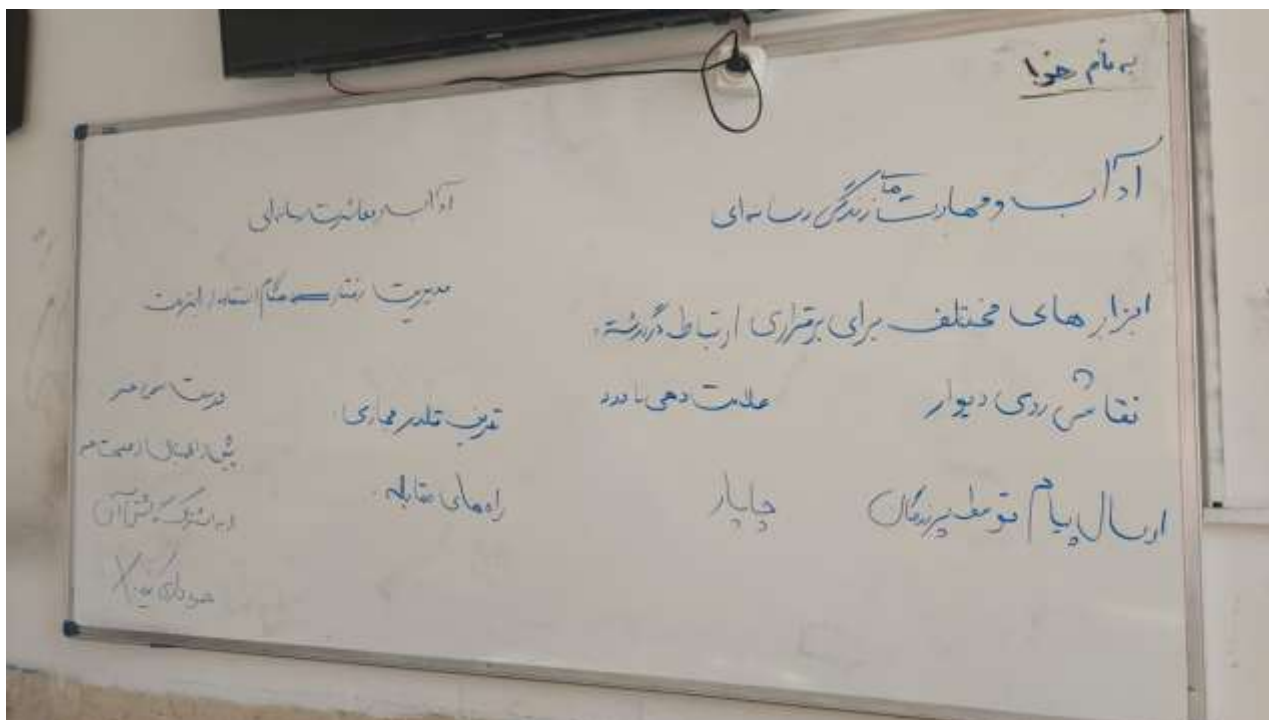 به نام خدا
آداب و مهارت‌های زندگی رسانه‌ای
ابزارهای مختلف برای برقراری ارتباط در گذشته:
نقاشی روی دیوار
علامت دهی با دود
ارسال پیام توسط پرندگان
چاپار
آداب معاشرت رسانه‌ای
مدیریت رفتار هنگام استفاده از اینترنت
تعریف قلدر مجازی:
راه‌های مقابله:
درست
پیش از ارسال از صحت
اشتراک گذاشتن آن
خودداری